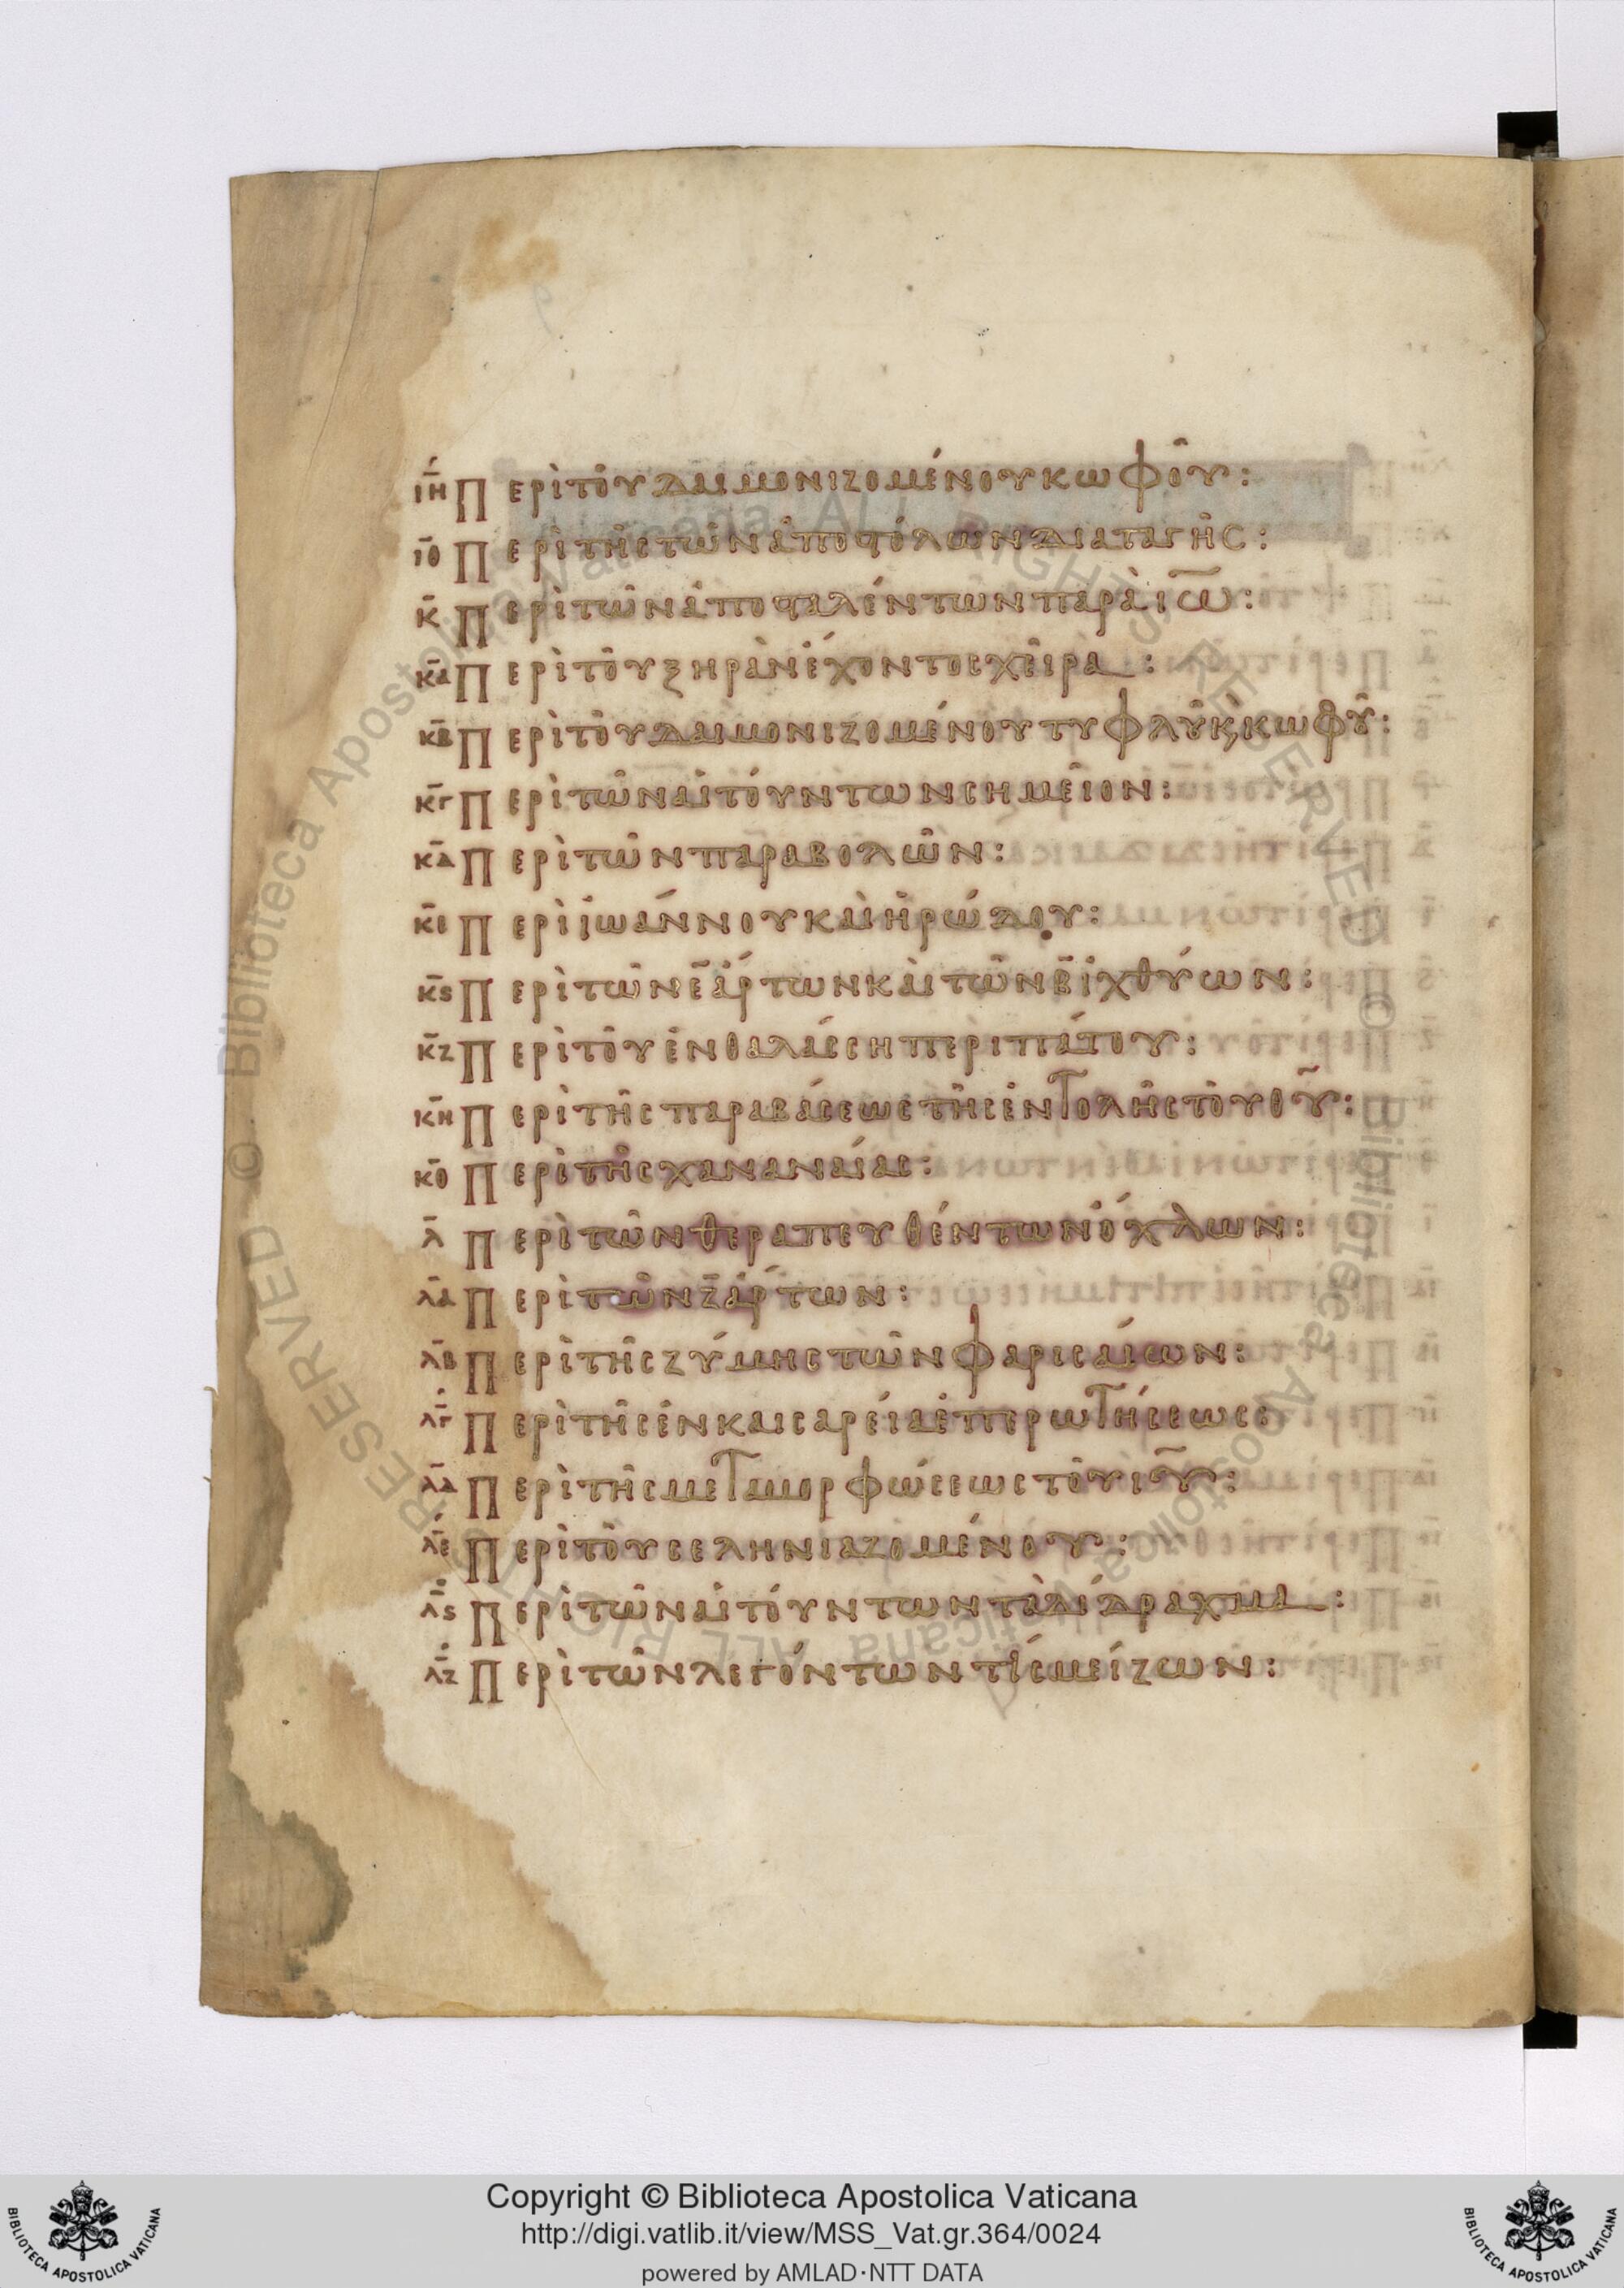 ιη Περὶ τοῦ δαιμονιζομένου κωφοῦ:
ιθ Περὶ τῆς τῶν ἀποστόλων διαταγῆς:
κ Περὶ τῶν ἀποσταλέντων παρὰ ιω:
κα Περὶ τοῦ ξηρὰν ἔχοντος χεῖρα:
κβ Περὶ τοῦ δαιμονιζομένου τυφλοῦ κ κωφοῦ:
κγ Περὶ τῶν αἰτούντων σημεῖον:
κδ Περὶ τῶν παραβολῶν:
κε Περὶ ἰωάννου καὶ ἡρώδου:
κς Περὶ τῶν ε ἄρτων καὶ τῶν β ἰχθύων:
κζ Περὶ τοῦ ἐν θαλάσση περιπάτου:
κη Περὶ τῆς παραβάσεως τῆς ἐντολῆς τοῦ θυ:
κθ Περὶ τῆς χαναναίας:
λ Περὶ τῶν θεραπευθέντων ὄχλων:
λα Περὶ τῶν ζ ἄρτων:
λβ Περὶ τῆς ζύμης τῶν φαρισαίων:
λγ Περὶ τῆς ἐν καισαρείᾳ ἐπερωτήσεως:
λδ Περὶ τῆς μεταμορφώσεως τοῦ ιυ:
λε Περὶ τοῦ σεληνιαζομένου:
λς Περὶ τῶν αἰτούντων τὰ δίδραχμα:
λζ Περὶ τῶν λεγόντων τίς μείζων:
© Biblioteca Apostolica Vaticana ALL RIGHTS RESERVED
Copyright © Biblioteca Apostolica Vaticana
http://digi.vatlib.it/view/MSS_Vat.gr.364/0024
powered by AMLAD·NTT DATA
BIBLIOTECA APOSTOLICA VATICANA
BIBLIOTECA APOSTOLICA VATICANA